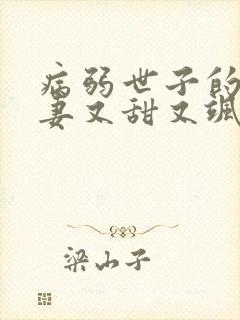 病弱世子的
妻又甜又飒
梁山子